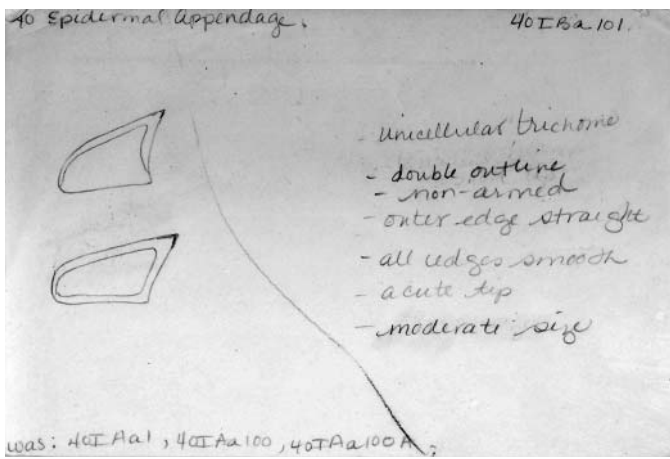 40 Epidermal Appendage.
40IBa101.
- Unicellular trichome
- double outline
- non-armed
- outer edge straight
- all edges smooth
- acute tip
- moderate size
was: 40IAa1, 40IAa100, 40IAa100A;